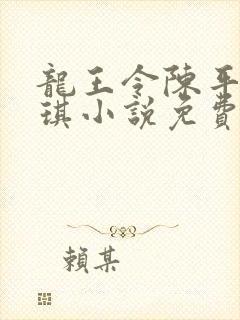 龍王令陳平
琪小說免費
賴某